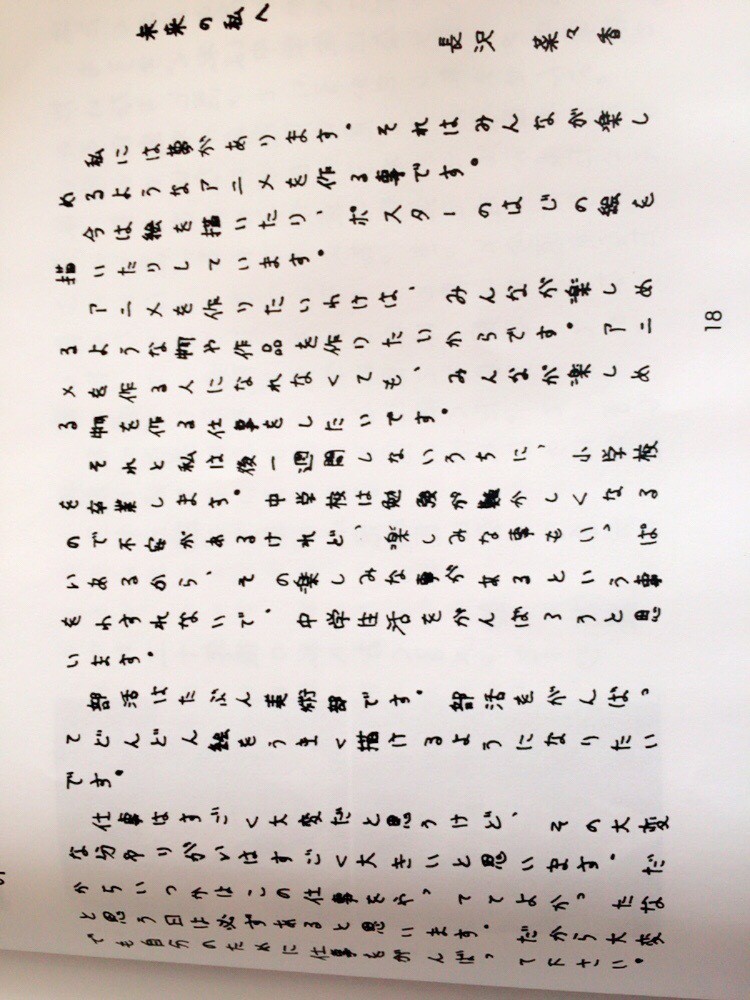 未来の私へ
長沢 菜々香
私には夢があります。それはみんなが楽し
めるようなアニメを作る事です。
今は絵を描いたり、ポスターのはじの絵を
描いたりしています。
アニメを作りたいわけは、みんなが楽しめ
るような物や作品を作りたいからです。アニ
メを作る人になれなくても、みんなが楽しめ
る物を作る仕事をしたいです。
それと私は後一週間しないうちに、小学校
を卒業します。中学校は勉強が難かしくなる
ので不安があるけれど、楽しみな事もいっぱ
いあるから、その楽しみな事があるという事
をわすれないで、中学生活をがんばろうと思
います。
部活はたぶん美術部です。部活をがんばっ
てどんどん絵をうまく描けるようになりたい
です。
仕事はすごく大変だと思うけど、その大変
な分やりがいはすごく大きいと思います。だ
からいつかはこの仕事をやっててよかったな
と思う日は必ずあると思います。だから大変
でも自分のために仕事をがんばって下さい。
18